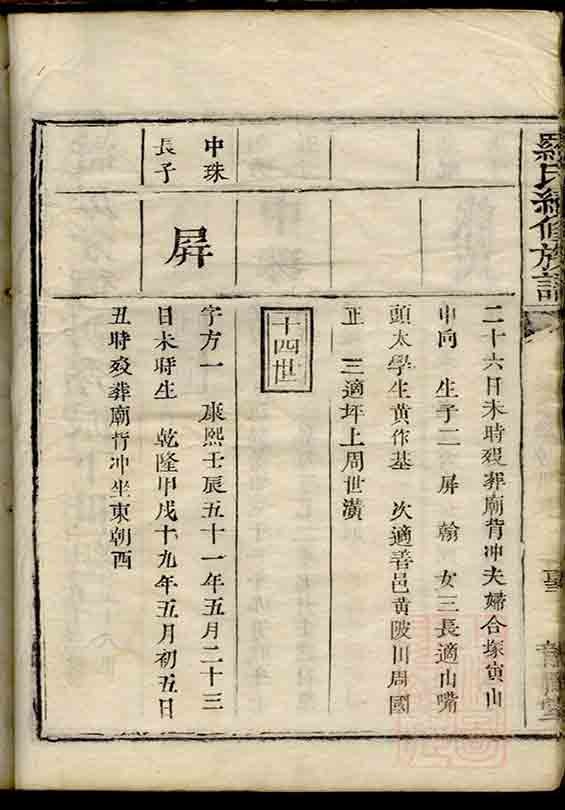 羅氏續修族譜
二十六日未時殁葬廟背冲夫婦合塚寅山
申向 生子二 屏 翰 女三長適山嘴
頭太學生黃作基 次適善邑黃陂川周國
正 三適坪上周世潢
十四世
中珠
長子
屏
字方一 康熙壬辰五十一年五月二十三
日未時生 乾隆甲戌十九年五月初五日
丑時殁葬廟背冲坐東朝西